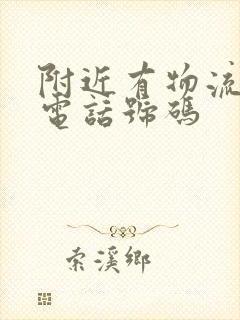 附近有物流
電話號碼
索溪鄉